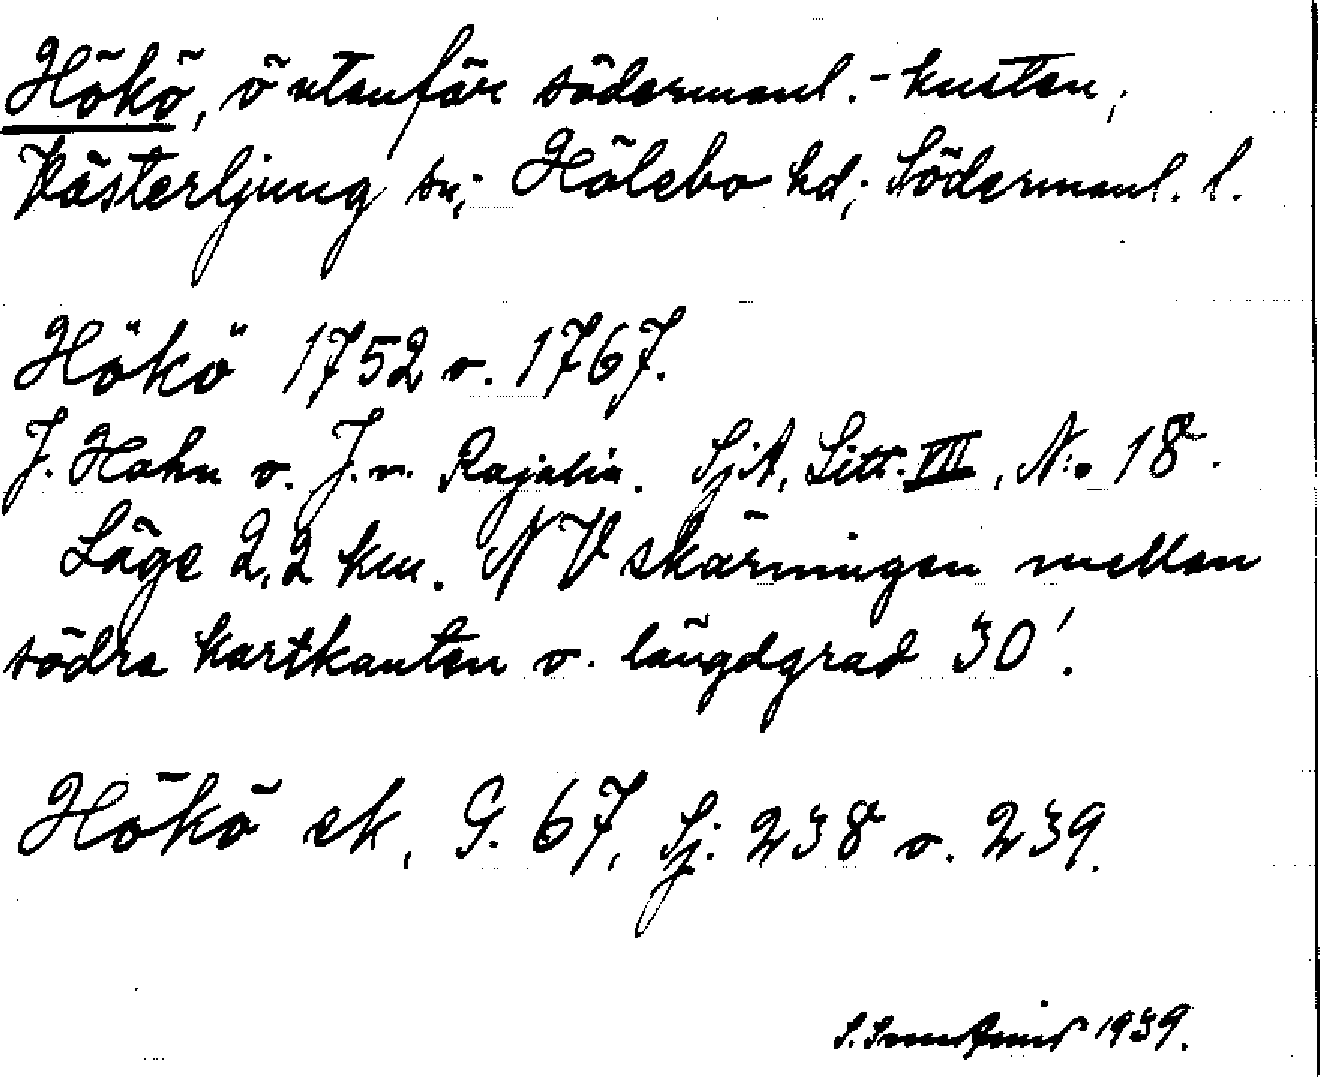 Hökö, ö utanför södermanl.-kusten,
Västerljung sn; Hölebo hd; Södermanl. l.
Hökö 1752 o. 1767.
J. Hahn o. J. v. Rajalin. SjA, Litt. VIII, N:o 18.
Läge 2,2 km. NV skärningen mellan
södra kartkanten o. längdgrad 30'.
Hökö ek, G. 67, Sj. 238 o. 239.
1939.